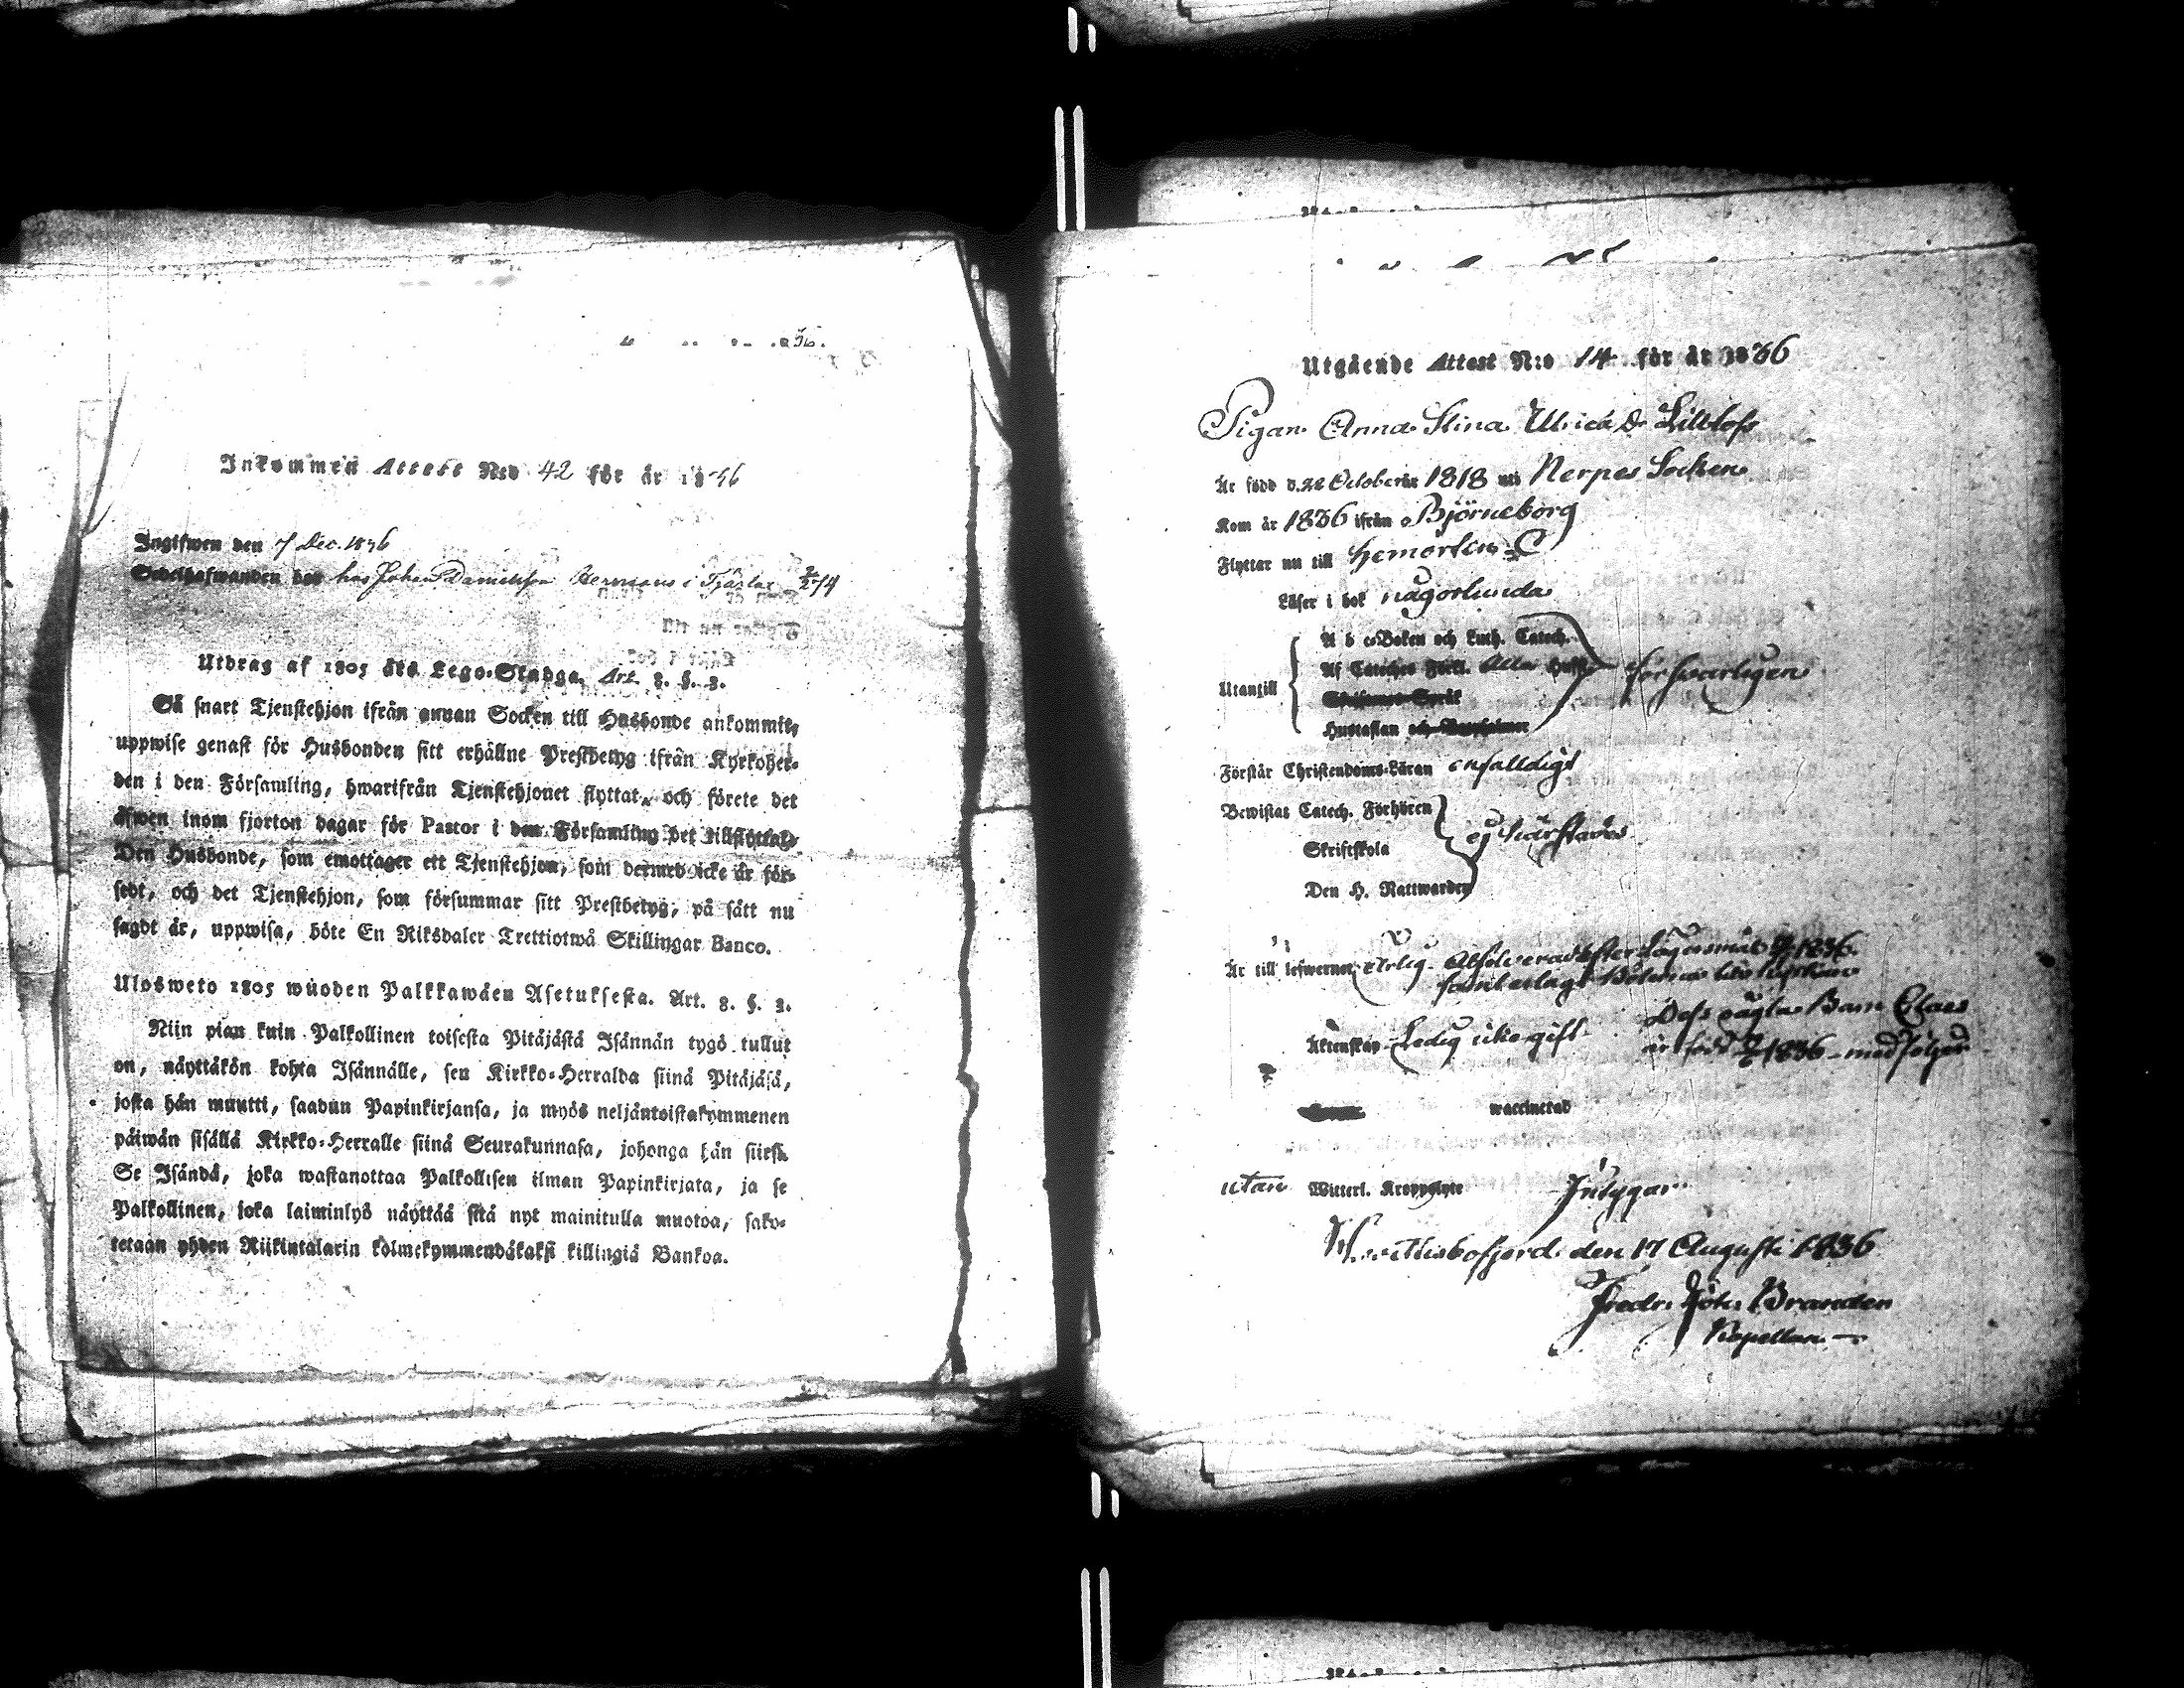 Inkommen Attest N:o 42 för år 1836
Ingifwen den 7 Dec. 1836
Sedelhafwanden bor hos Johan Danielsson Hermans i Tjärlax
Utdrag af 1805 års Lego-Stadga. Art. 8. §. 3.
Så snart Tjenstehjon ifrån annan Socken till Husbonde ankommit,
uppwise genast för Husbonden sitt erhållne Prestbetyg ifrån Kyrkoher-
den i den Församling, hwarifrån Tjenstehjonet flyttat, och förete det
äfwen inom fjorton dagar för Pastor i den Församling det tillflyttat.
Den Husbonde, som emottager ett Tjenstehjon, som dermed icke är för-
sedt, och det Tjenstehjon, som försummar sitt Prestbetyg, på sätt nu
sagdt är, uppwisa, böte En Riksdaler Trettiotwå Skillingar Banco.
Ulosweto 1805 wuoden Palkkawäen Asetuksesta. Art. 8. §. 3.
Niin pian kuin Palkollinen toisesta Pitäjästä Isännän tygö tullut
on, näyttäkön kohta Isännälle, sen Kirkko-Herralda siinä Pitäjäsä,
josta hän muutti, saadun Papinkirjansa, ja myös neljäntoistakymmenen
päiwän sisällä Kirkko-Herralle siinä Seurakunnasa, johonga hän siirsi.
Se Isändä, joka wastanottaa Palkollisen ilman Papinkirjata, ja se
Palkollinen, joka laiminlyö näyttää sitä nyt mainitulla muotoa, sako-
tetaan yhden Riikintalarin kolmekymmendäkaksi killingiä Bankoa.
Utgående Attest N:o 14 för år 1836
Pigan Anna Stina Ulrica D:r Lillblofs
Är född d. 22 October år 1818 uti Nerpes Socken
Kom år 1836 ifrån Björneborg
Flyttar nu till hemorten
Läser i bok någorlunda
A b c-Boken och Luth. Catech.
Utantill Af Cateches Förkl. Alla Hufst. försvarligen
Skriftenes Språk
Hustaflan och
Förstår Christendoms-Läran enfalldigt
Bewistat Catech. Förhören
Skriftskola ej härstädes
Den H. Nattwarden
Är till lefwernet ärlig. Absolverad efter Lägersmål 1836
samt erlagt Böterna
Dess oägta Barn Claes
Äktenskap Ledig icke gift är född 1836 - medföljer
waccinerad
utan Witterl. Kroppslyte Intygar
den 17 Augusti 1836
Fredr. Joh. Brandon
Kapellan